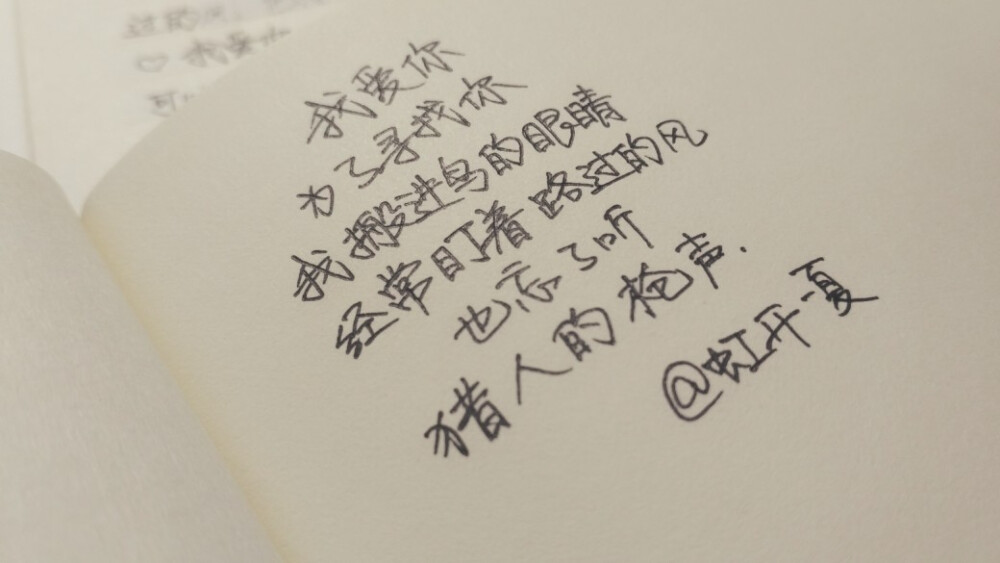 我爱你
为了寻找你
我搬进鸟的眼睛
经常盯着路过的风
也忘了听
猎人的枪声.
@虹开·夏